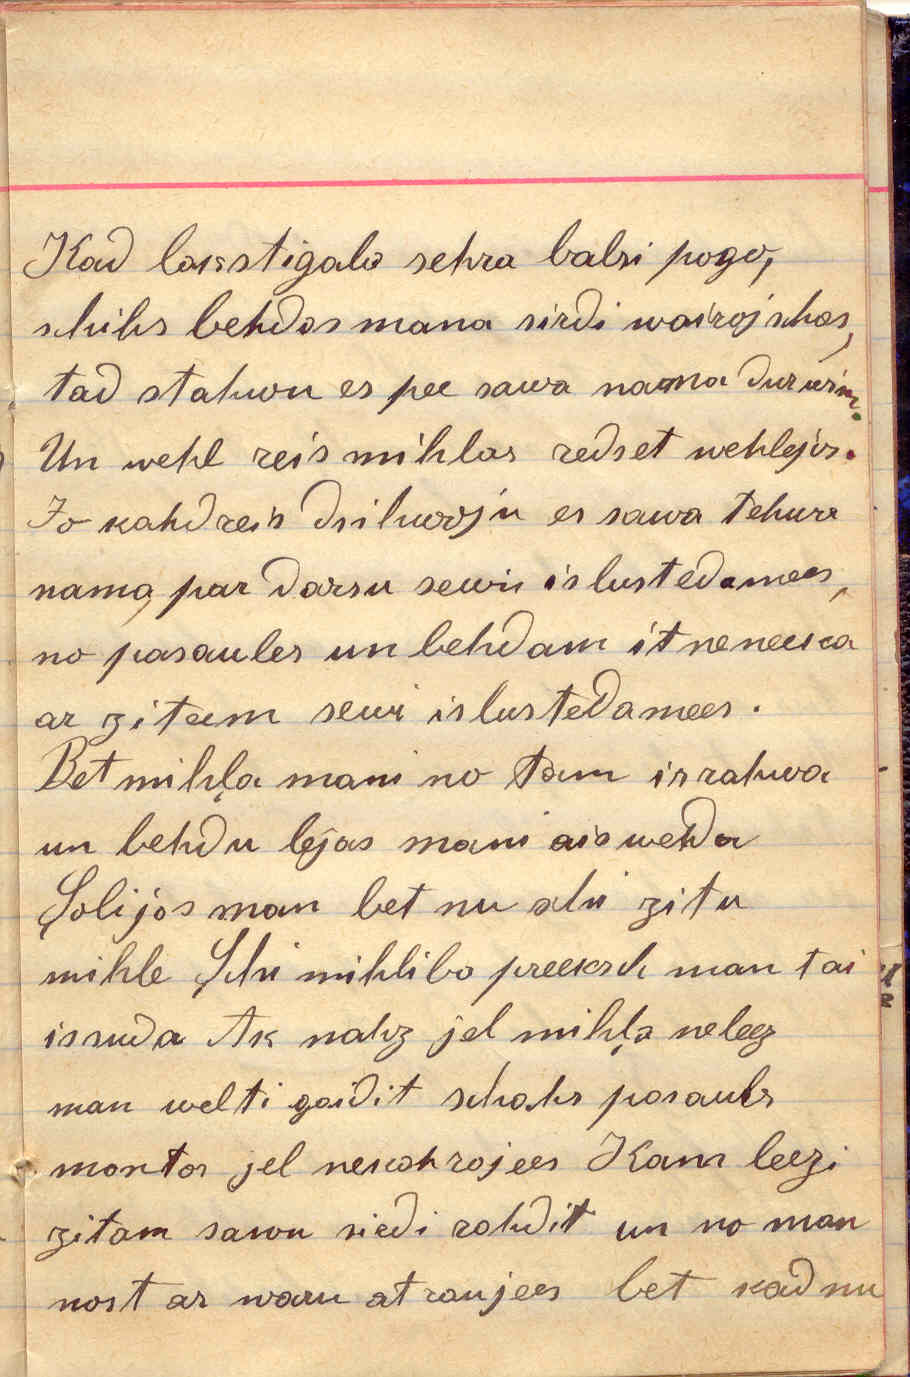 Kad lakstigala sehra balsi pogo,
schihs behdas mana sirdi wairojschas,
tad stahwu es pee sawa nama durwim.
Un wehl reis mihlas redset wehlejos.
Jo kahdreis dsihwoju es sawa tehwa
nama, par darsu sewi islustedamees,
no pasaules un behdam it neneeka
ar ziteem sewi islustedamees.
Bet mihļa mani no tam israhwa
un behdu lejas mani aiswehda
Solijos man bet nu schi zitu
mihle Schi mihliba preeksch man tai
issuda Ak nahz jel mihļa neleez
man welti gaidit schahs pasaules
mantas jel nekahrojees Kam leezi
zitam sawu sirdi rahdit un no man
nost ar waru atraujees bet kad nu